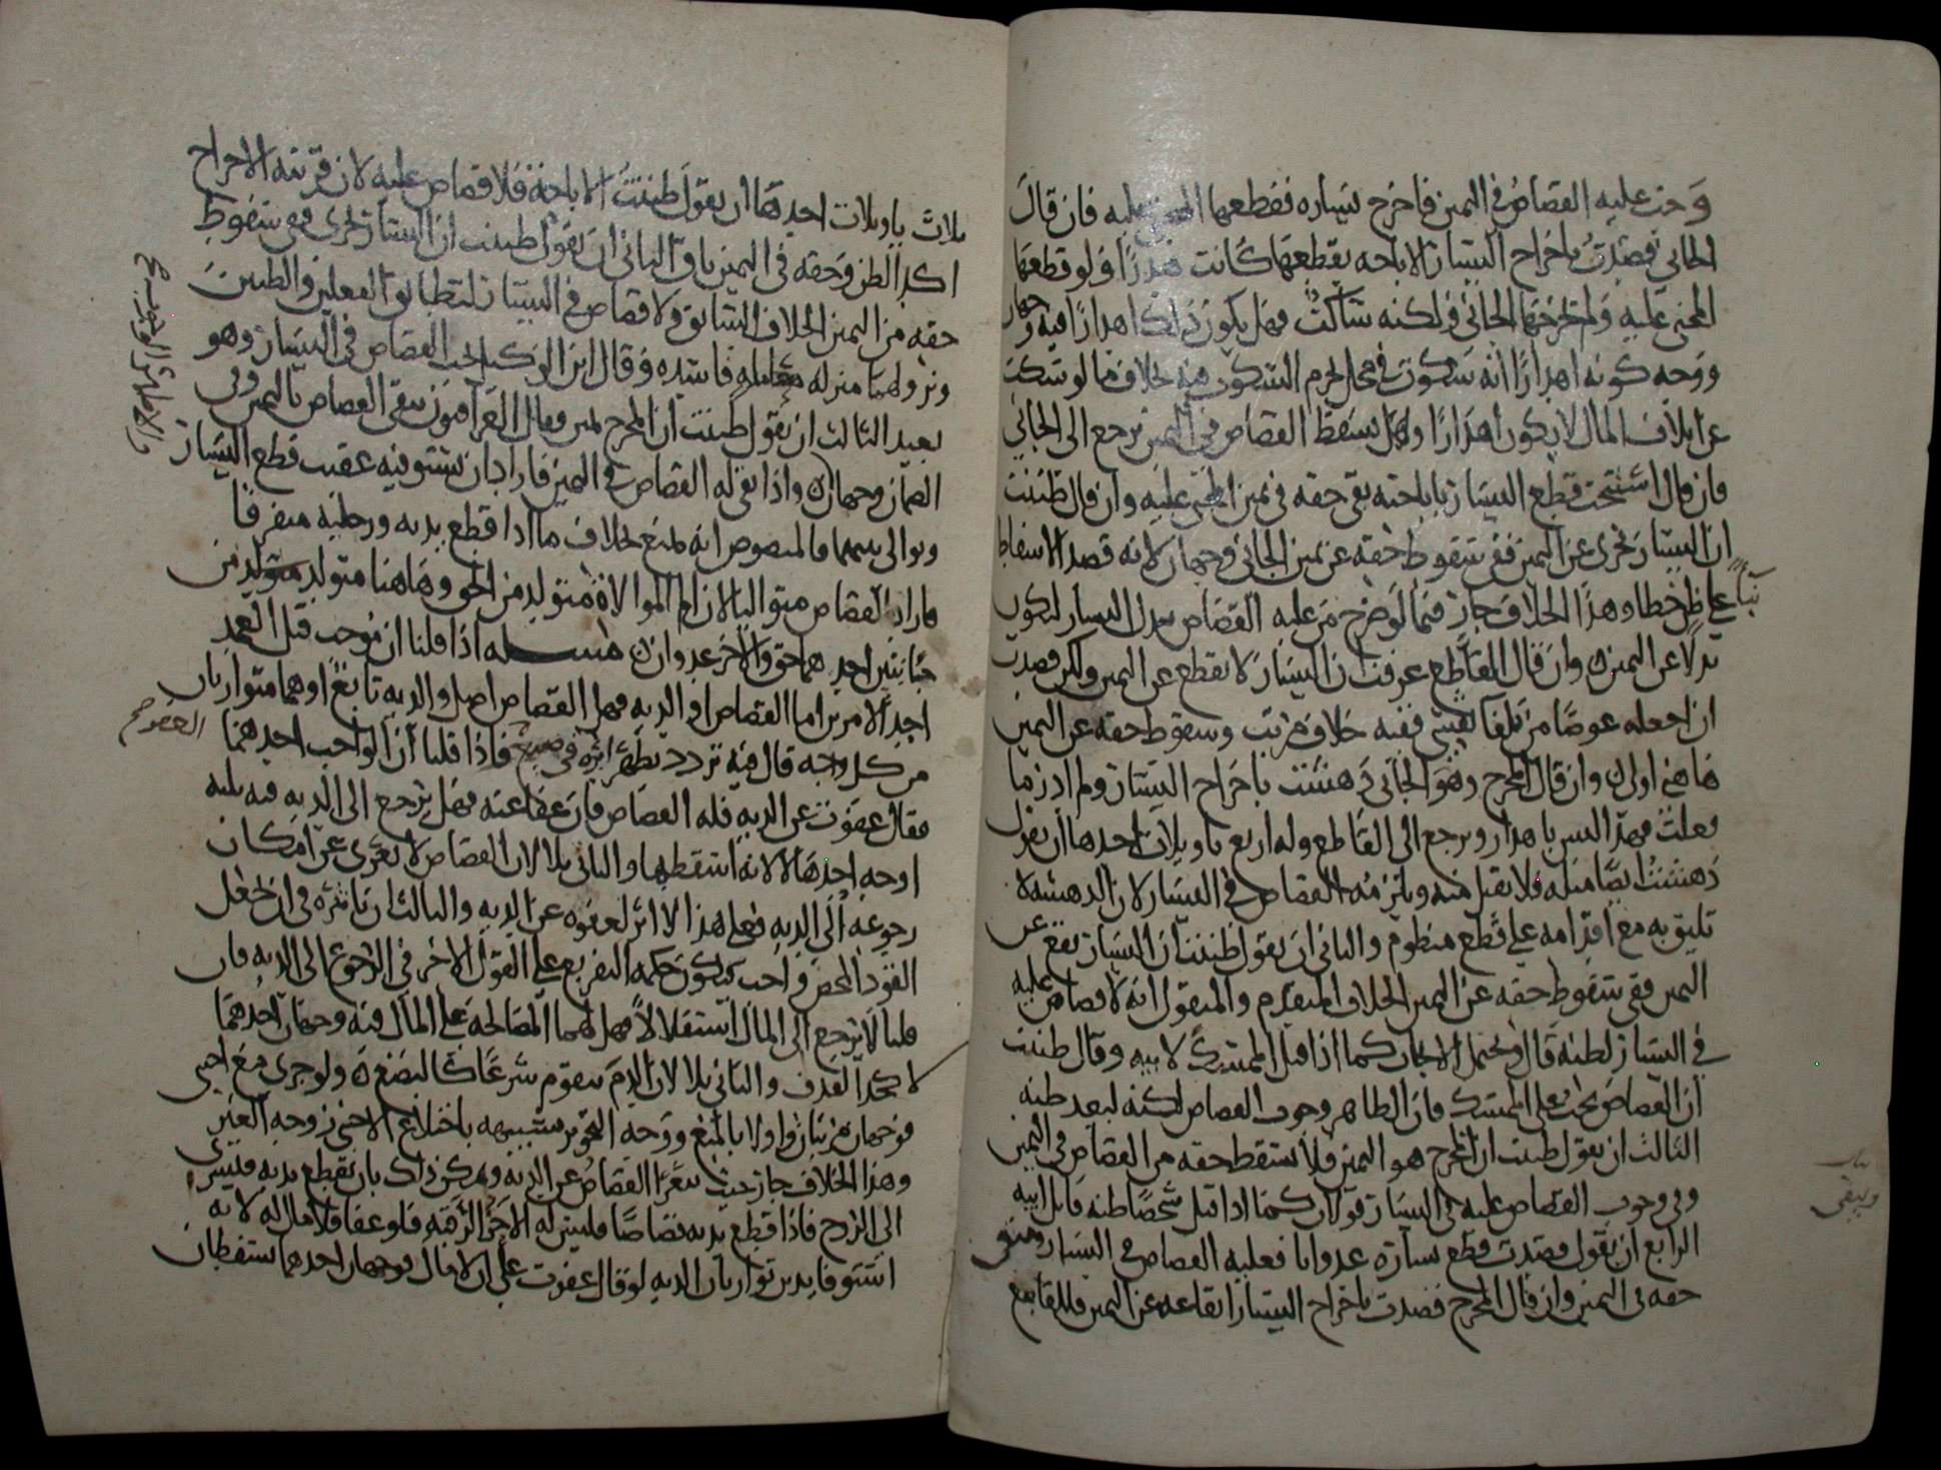 وجب عليه القصاص في اليمين فاخرج يساره فقطعها المجني عليه فان قال
الجاني قصدت باخراج اليسار الاباحه بقطعها كانت هدرا ولو قطعها
المجني عليه ولم يخرجها الجاني ولكنه ساكت فهل يكون ذلك اهدارا فيه وجهان
ووجه كونه اهدارا انه سكوت في محل يحرم السكون فيه بخلاف ما لو سكت
عن اتلاف المال لا يكون اهدارا وهل يسقط القصاص في اليمين نرجع الى الجاني
فان قال استبحت قطع اليسار باباحته بقي حقه في يمين المجني عليه وان قال ظننت
ان اليسار تجزى عن اليمين ففي سقوط حقه عن يمين الجاني وجهان لانه قصد الاسقاط
بناء على ظن خطا وهذا الخلاف جار فيما لو ضرح من عليه القصاص ببدل اليسار ليكون
بدلا عن اليمين وان قال القاطع عرفت ان اليسار لا يقطع عن اليمين ولكن قصدت
ان اجعله عوضا من تلقا نفسي ففيه خلاف مرتب وسقوط حقه عن اليمين
هاهنا اولى وان قال المخرج وهو الجاني دهشت باخراج اليسار ولم ادر ما
فعلت فهذا ليس باهدار ونرجع الى القاطع وله اربع تاويلات احدها ان يقول
دهشت ايضا مثله فلا يقبل منه ويلزمه القصاص في اليسار لان الدهشه لا
تليق به مع اقدامه على قطع منظوم والثاني ان يقول ظننت ان اليسار يقع عن
اليمين ففي سقوط حقه عن اليمين الخلاف المتقدم والمنقول انه لا قصاص عليه
في اليسار لظنه قال ويحتمل الايجاب كما اذا قتل الممسك لابيه وقال ظننت
ان القصاص يجب على الممسك فان الظاهر وجوب القصاص لكنه لبعد ظنه
الثالث ان يقول ظننت ان المخرج هو اليمين فلا يسقط حقه من القصاص في اليمين
وفي وجوب القصاص عليه في اليسار قولان كما اذا قتل شخصا ظنه قاتل ابيه
الرابع ان يقول قصدت قطع يساره عدوانا فعليه القصاص في اليسار ويبقى
حقه في اليمين وان قال المخرج قصدت باخراج اليسار ايقاعه عن اليمين فللقاطع
بيان
ويبقى
ثلاث تاويلات احدها ان يقول ظننت الاباحة فلا قصاص عليه لان قرينه الاخراج
اكد الظن وحقه في اليمين باق الثاني ان يقول ظننت ان اليسار تجزى ففي سقوط
حقه من اليمين الخلاف السابق ولا قصاص في اليسار لتطابق الفعلين والظنين
ونزولهما منزله معامله فاسده وقال ابن الوكيل يجب القصاص في اليسار وهو
بعيد الثالث ان يقول ظننت ان المخرج يمين وقال العراقيون يبقى القصاص باليمين وفي
الضمان وجهان واذا بقي له القصاص في اليمين فاراد ان يستوفيه عقيب قطع اليسار
ويوالي بينهما فالمنصوص انه يمنع بخلاف ما اذا قطع يديه ورجليه متفرقا
فاراد القصاص متواليا لان الم الموالاة متولد من الحق وهاهنا متولد متولد من
جنايتين احدهما حق والاخر عدوان مسله اذا قلنا ان موجب قتل العمد
احد الامرين اما القصاص او الديه فهل القصاص اصل والديه تابع او هما متوازيان
من كل وجه قال فيه تردد يظهر اثره في صيغ فاذا قلنا ان الواجب احدهما
العفو صح
فقال عفوت عن الديه فله القصاص فان عفا عنه فهل يرجع الى الديه فيه ثلثه
اوجه احدها لا لانه اسقطها والثاني بلا لان القصاص لا يعرى عن امكان
رجوعه الى الديه فعلى هذا لا اثر لعفوه عن الديه والثالث ان تاثيره في ان يجعل
القود المحض واجب فيكون حكمه التفريع على القول الاخر في الرجوع الى الديه فان
قلنا لا يرجع الى المال استقلالا فهل لهما المصالحه على المال فيه وجهان احدهما
لا كحد القذف والثاني بلا لان الدم متقوم شرعا كالبضع ولو جرى مع اجنبي
فوجهان مرتبان واولا بالمنع ووجه التجويز تشبيهه باختلاع الاجنبي زوجه الغير
وهذا الخلاف جار حيث تعرا القصاص عن الديه ويمكن ذلك بان يقطع يديه فيسري
الى الروح فاذا قطع يديه قصاصا فليس له الا جز الرقبه فلو عفا فلا مال له لانه
استوفا يدين توازيان الديه لو قال عفوت على ان لا مال فوجهان احدهما يسقطان